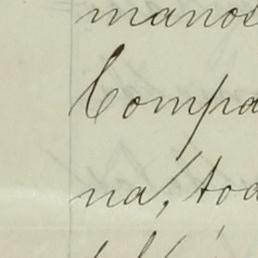 manos
Compa
na, tod